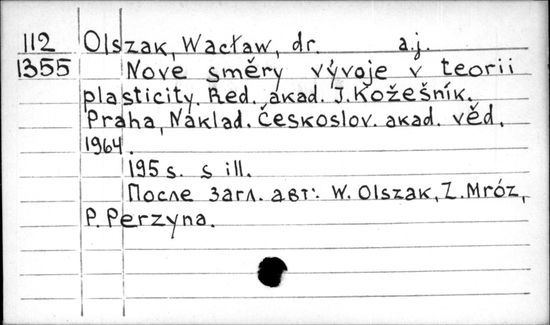 112 Olszak, Wacław, dr. a.j.
1355 Nove směry vývoje v teorii
plasticity. Red. akad. J. Kožešník.
Praha, Náklad. Českoslov. akad. věd.
1964.
195 s. s ill.
После загл. авт.: W. Olszak, Z. Mróz,
P. Perzyna.